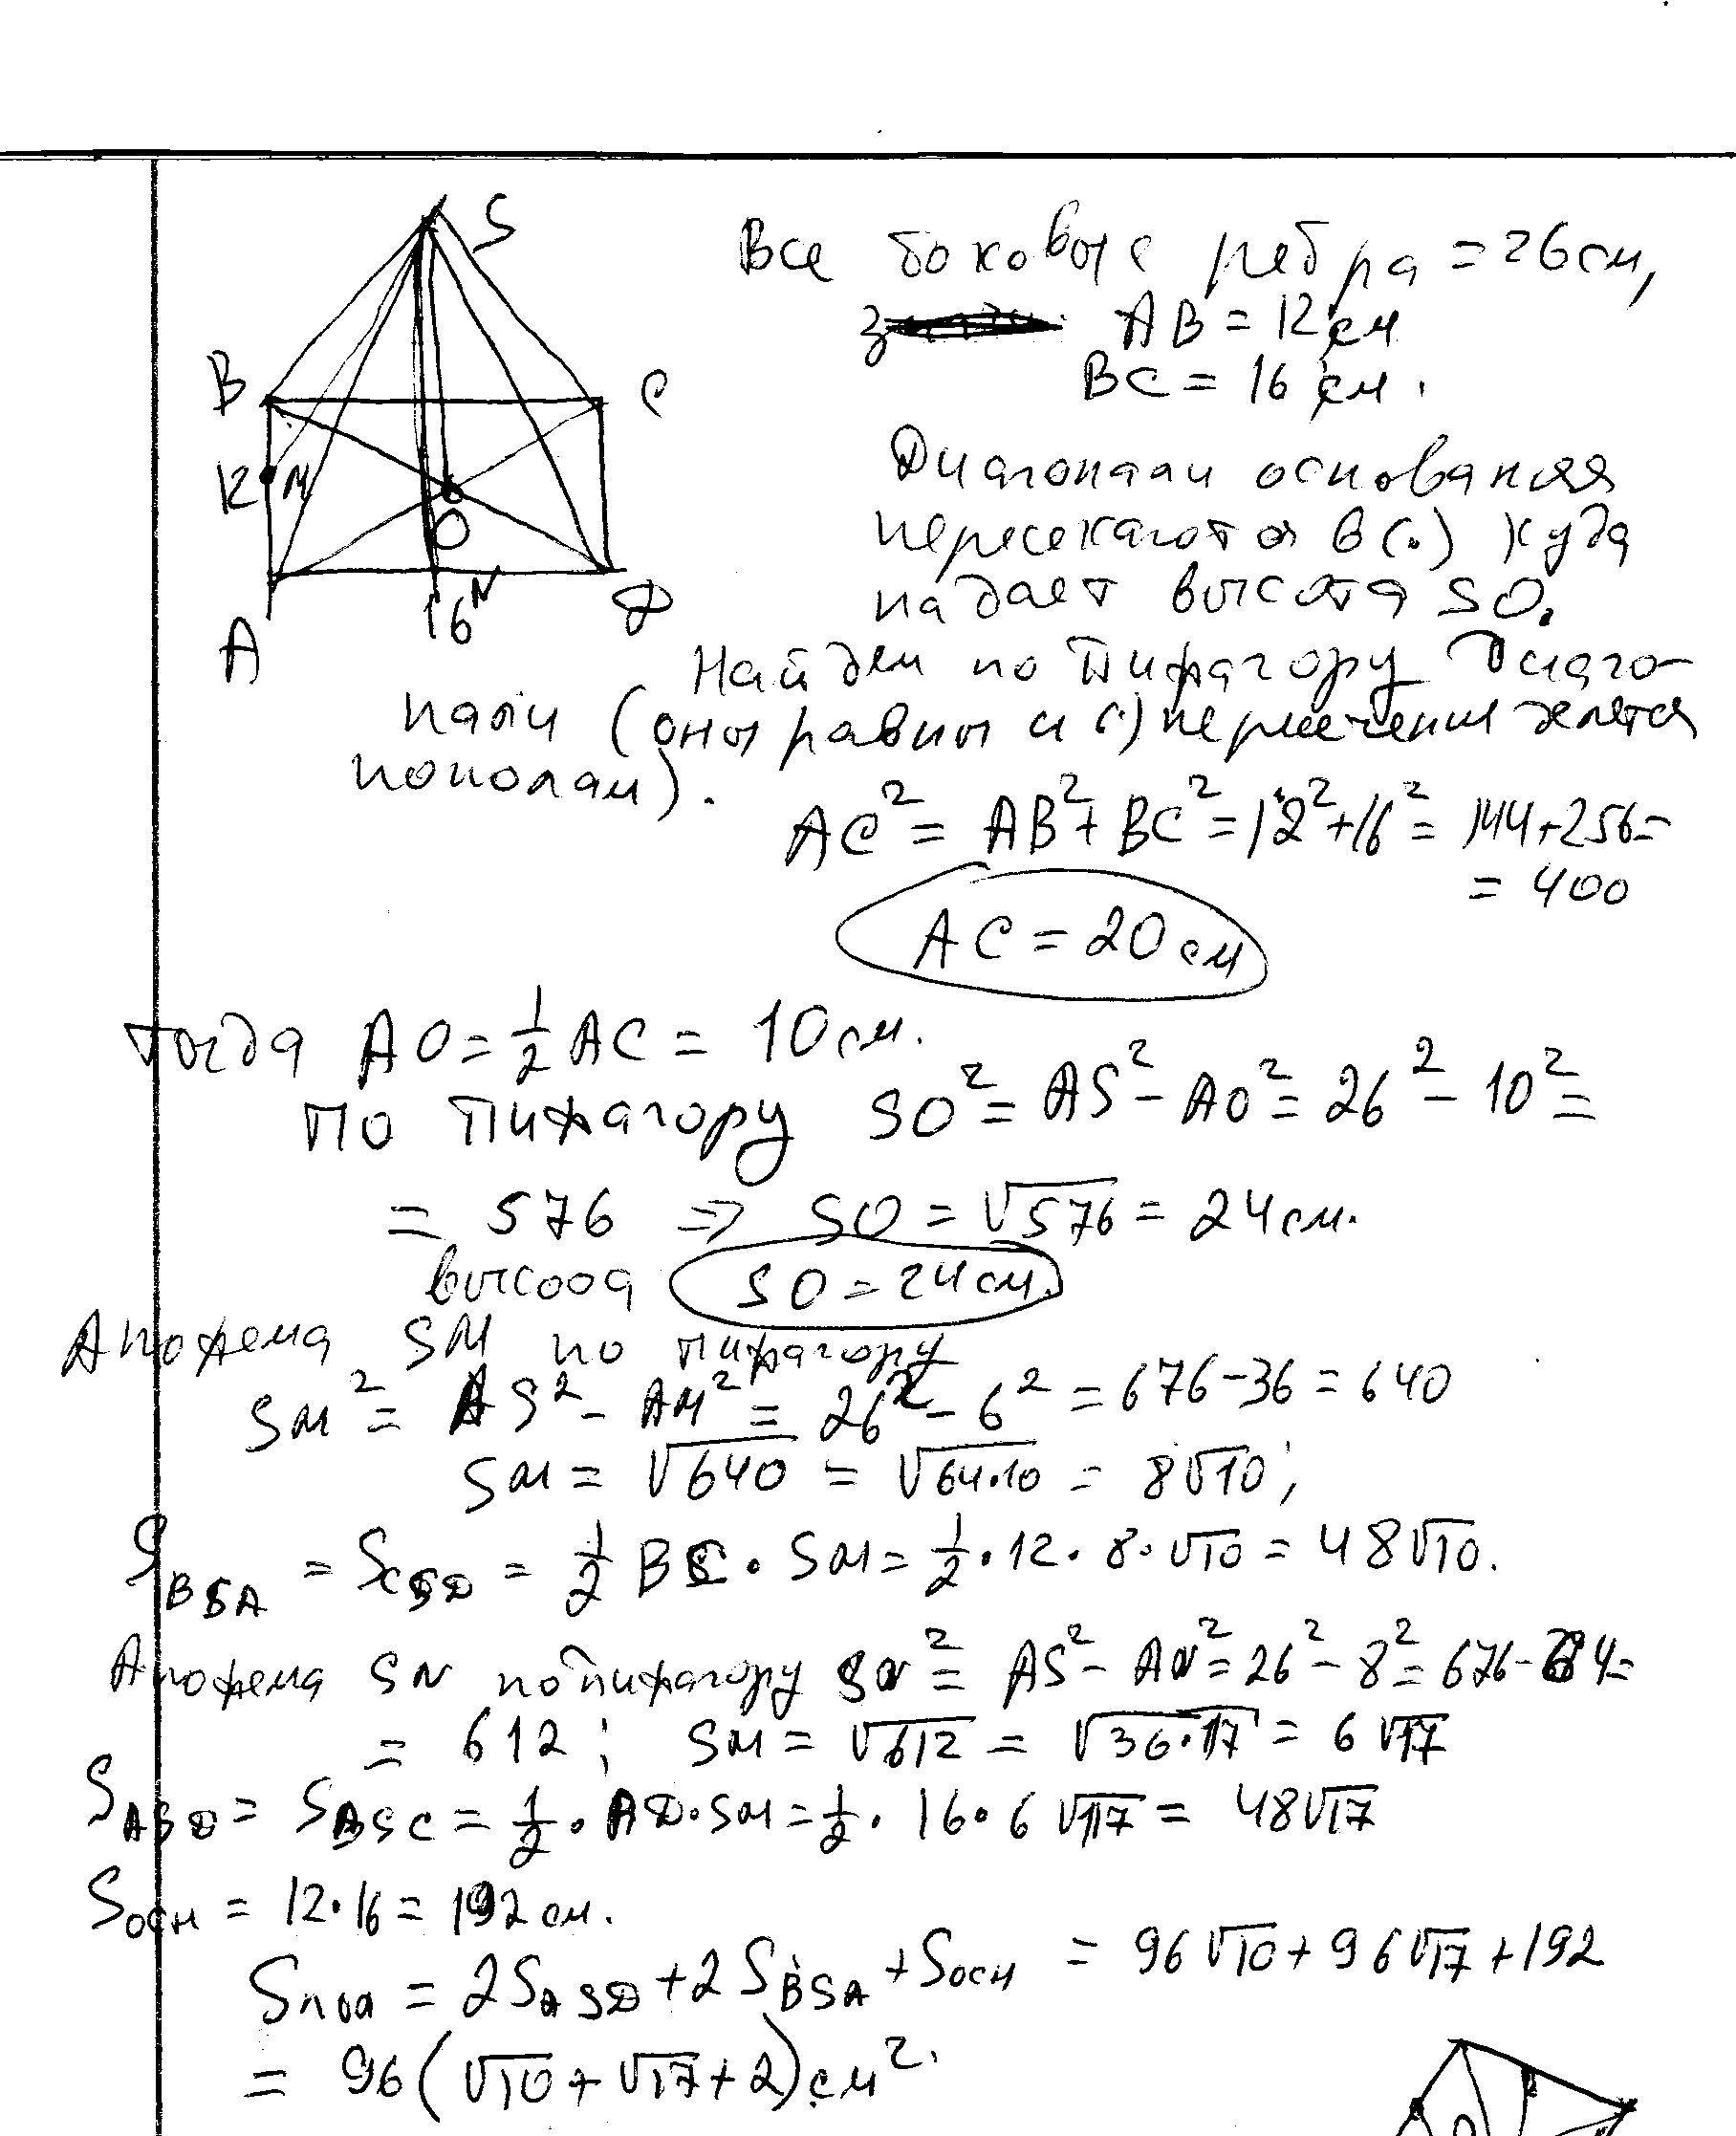 S
Все боковые ребра = 26 см,
AB = 12 см
BC = 16 см.
B
C
12
M
O
N
16
A
D
Диагонали основания
пересекаются в (.) куда
падает высота SO.
Найдем по Пифагору диаго-
нали (они равны и (.) пересечения делятся
пополам).
AC² = AB² + BC² = 12² + 16² = 144 + 256 =
= 400
AC = 20 см
тогда AO = 1/2 AC = 10 см.
По Пифагору SO² = AS² - AO² = 26² - 10² =
= 576 ⇒ SO = √576 = 24 см.
высоа SO = 24 см.
Апофема SM по пифагору
SM² = AS² - AM² = 26² - 6² = 676 - 36 = 640
SM = √640 = √64·10 = 8√10;
S BSA = S CSD = 1/2 BC · SM = 1/2 · 12 · 8 · √10 = 48√10.
Апофема SN по пифагору SN² = AS² - AN² = 26² - 8² = 676 - 64 =
= 612; SM = √612 = √36·17 = 6√17
S ASD = S BSC = 1/2 · AD · SM = 1/2 · 16 · 6√17 = 48√17
S осн = 12 · 16 = 192 см.
S пов = 2S ASD + 2S BSA + S осн = 96√10 + 96√17 + 192
= 96(√10 + √17 + 2) см².